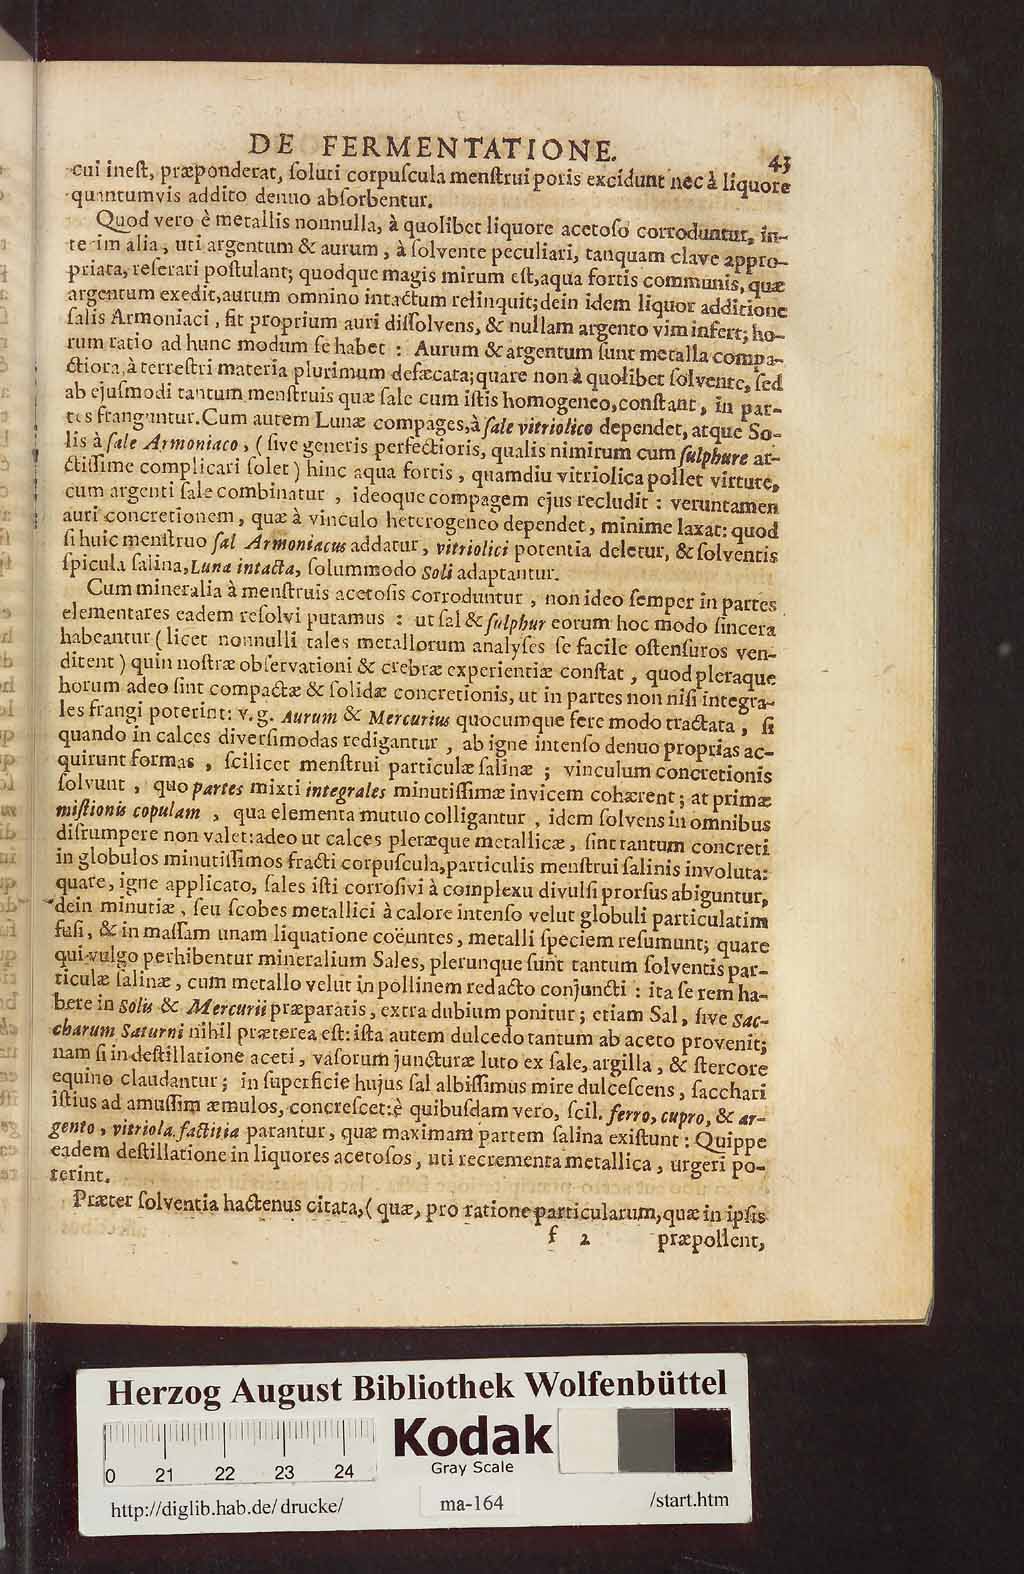 DE FERMENTATIONE. 43
cui ineſt, præponderat, ſoluti corpuſcula menſtrui poris excidunt nec à liquore
quantumvis addito denuo abſorbentur.
Quod vero è metallis nonnulla, à quolibet liquore acetoſo corroduntur, in-
terim alia, uti argentum & aurum, à ſolvente peculiari, tanquam clave appro-
priata, reſerari poſtulant; quodque magis mirum eſt, aqua fortis communis, quæ
argentum exedit, aurum omnino intactum relinquit; dein idem liquor additione
ſalis Armoniaci, fit proprium auri diſſolvens, & nullam argento vim infert; ho-
rum ratio ad hunc modum ſe habet : Aurum & argentum ſunt metalla compa-
ctiora, à terreſtri materia plurimum defæcata; quare non à quolibet ſolvente, ſed
ab ejuſmodi tantum menſtruis quæ ſale cum iſtis homogeneo, conſtant, in par-
tes franguntur. Cum autem Lunæ compages, à ſale vitriolico dependet, atque So-
lis à ſale Armoniaco, (ſive generis perfectioris, qualis nimirum cum ſulphure ar-
ctiſſime complicari ſolet) hinc aqua fortis, quamdiu vitriolica pollet virtute,
cum argenti ſale combinatur, ideoque compagem ejus recludit : veruntamen
auri concretionem, quæ à vinculo heterogeneo dependet, minime laxat: quod
ſi huic menſtruo ſal Armoniacus addatur, vitriolici potentia deletur, & ſolventis
ſpicula ſalina, Luna intacta, ſolummodo Soli adaptantur.
Cum mineralia à menſtruis acetoſis corroduntur, non ideo ſemper in partes
elementares eadem reſolvi putamus : ut ſal & ſulphur eorum hoc modo ſincera
habeantur (licet nonnulli tales metallorum analyſes ſe facile oſtenſuros ven-
ditent) quin noſtræ obſervationi & crebræ experientiæ conſtat, quod pleraque
horum adeo ſint compactæ & ſolidæ concretionis, ut in partes non niſi integra-
les frangi poterint: v. g. Aurum & Mercurius quocumque fere modo tractata, ſi
quando in calces diverſimodas redigantur, ab igne intenſo denuo proprias ac-
quirunt formas, ſcilicet menſtrui particulæ ſalinæ ; vinculum concretionis
ſolvunt, quo partes mixti integrales minutiſſimæ invicem cohærent; at primæ
miſtionis copulam, qua elementa mutuo colligantur, idem ſolvens in omnibus
diſrumpere non valet: adeo ut calces pleræque metallicæ, ſint tantum concreti
in globulos minutiſſimos fracti corpuſcula, particulis menſtrui ſalinis involuta:
quare, igne applicato, ſales iſti corroſivi à complexu divulſi prorſus abiguntur,
dein minutiæ, ſeu ſcobes metallici à calore intenſo velut globuli particulatim
fuſi, & in maſſam unam liquatione coëuntes, metalli ſpeciem reſumunt; quare
qui vulgo perhibentur mineralium Sales, plerunque ſunt tantum ſolventis par-
ticulæ ſalinæ, cum metallo velut in pollinem redacto conjuncti : ita ſe rem ha-
bere in Solis & Mercurii præparatis, extra dubium ponitur; etiam Sal, ſive Sac-
charum Saturni nihil præterea eſt: iſta autem dulcedo tantum ab aceto provenit;
nam ſi in deſtillatione aceti, vaſorum juncturæ luto ex ſale, argilla, & ſtercore
equino claudantur; in ſuperficie hujus ſal albiſſimus mire dulceſcens, ſacchari
iſtius ad amuſſim æmulos, concreſcet: è quibuſdam vero, ſcil. ferro, cupro, & ar-
gento, vitriola factitia parantur, quæ maximam partem ſalina exiſtunt: Quippe
eadem deſtillatione in liquores acetoſos, uti recrementa metallica, urgeri po-
terint.
Præter ſolventia hactenus citata, (quæ, pro ratione particularum, quæ in ipſis
f 2 præpollent,
Herzog August Bibliothek Wolfenbüttel
Kodak
Gray Scale
0 21 22 23 24
http://diglib.hab.de/drucke/ ma-164 /start.htm